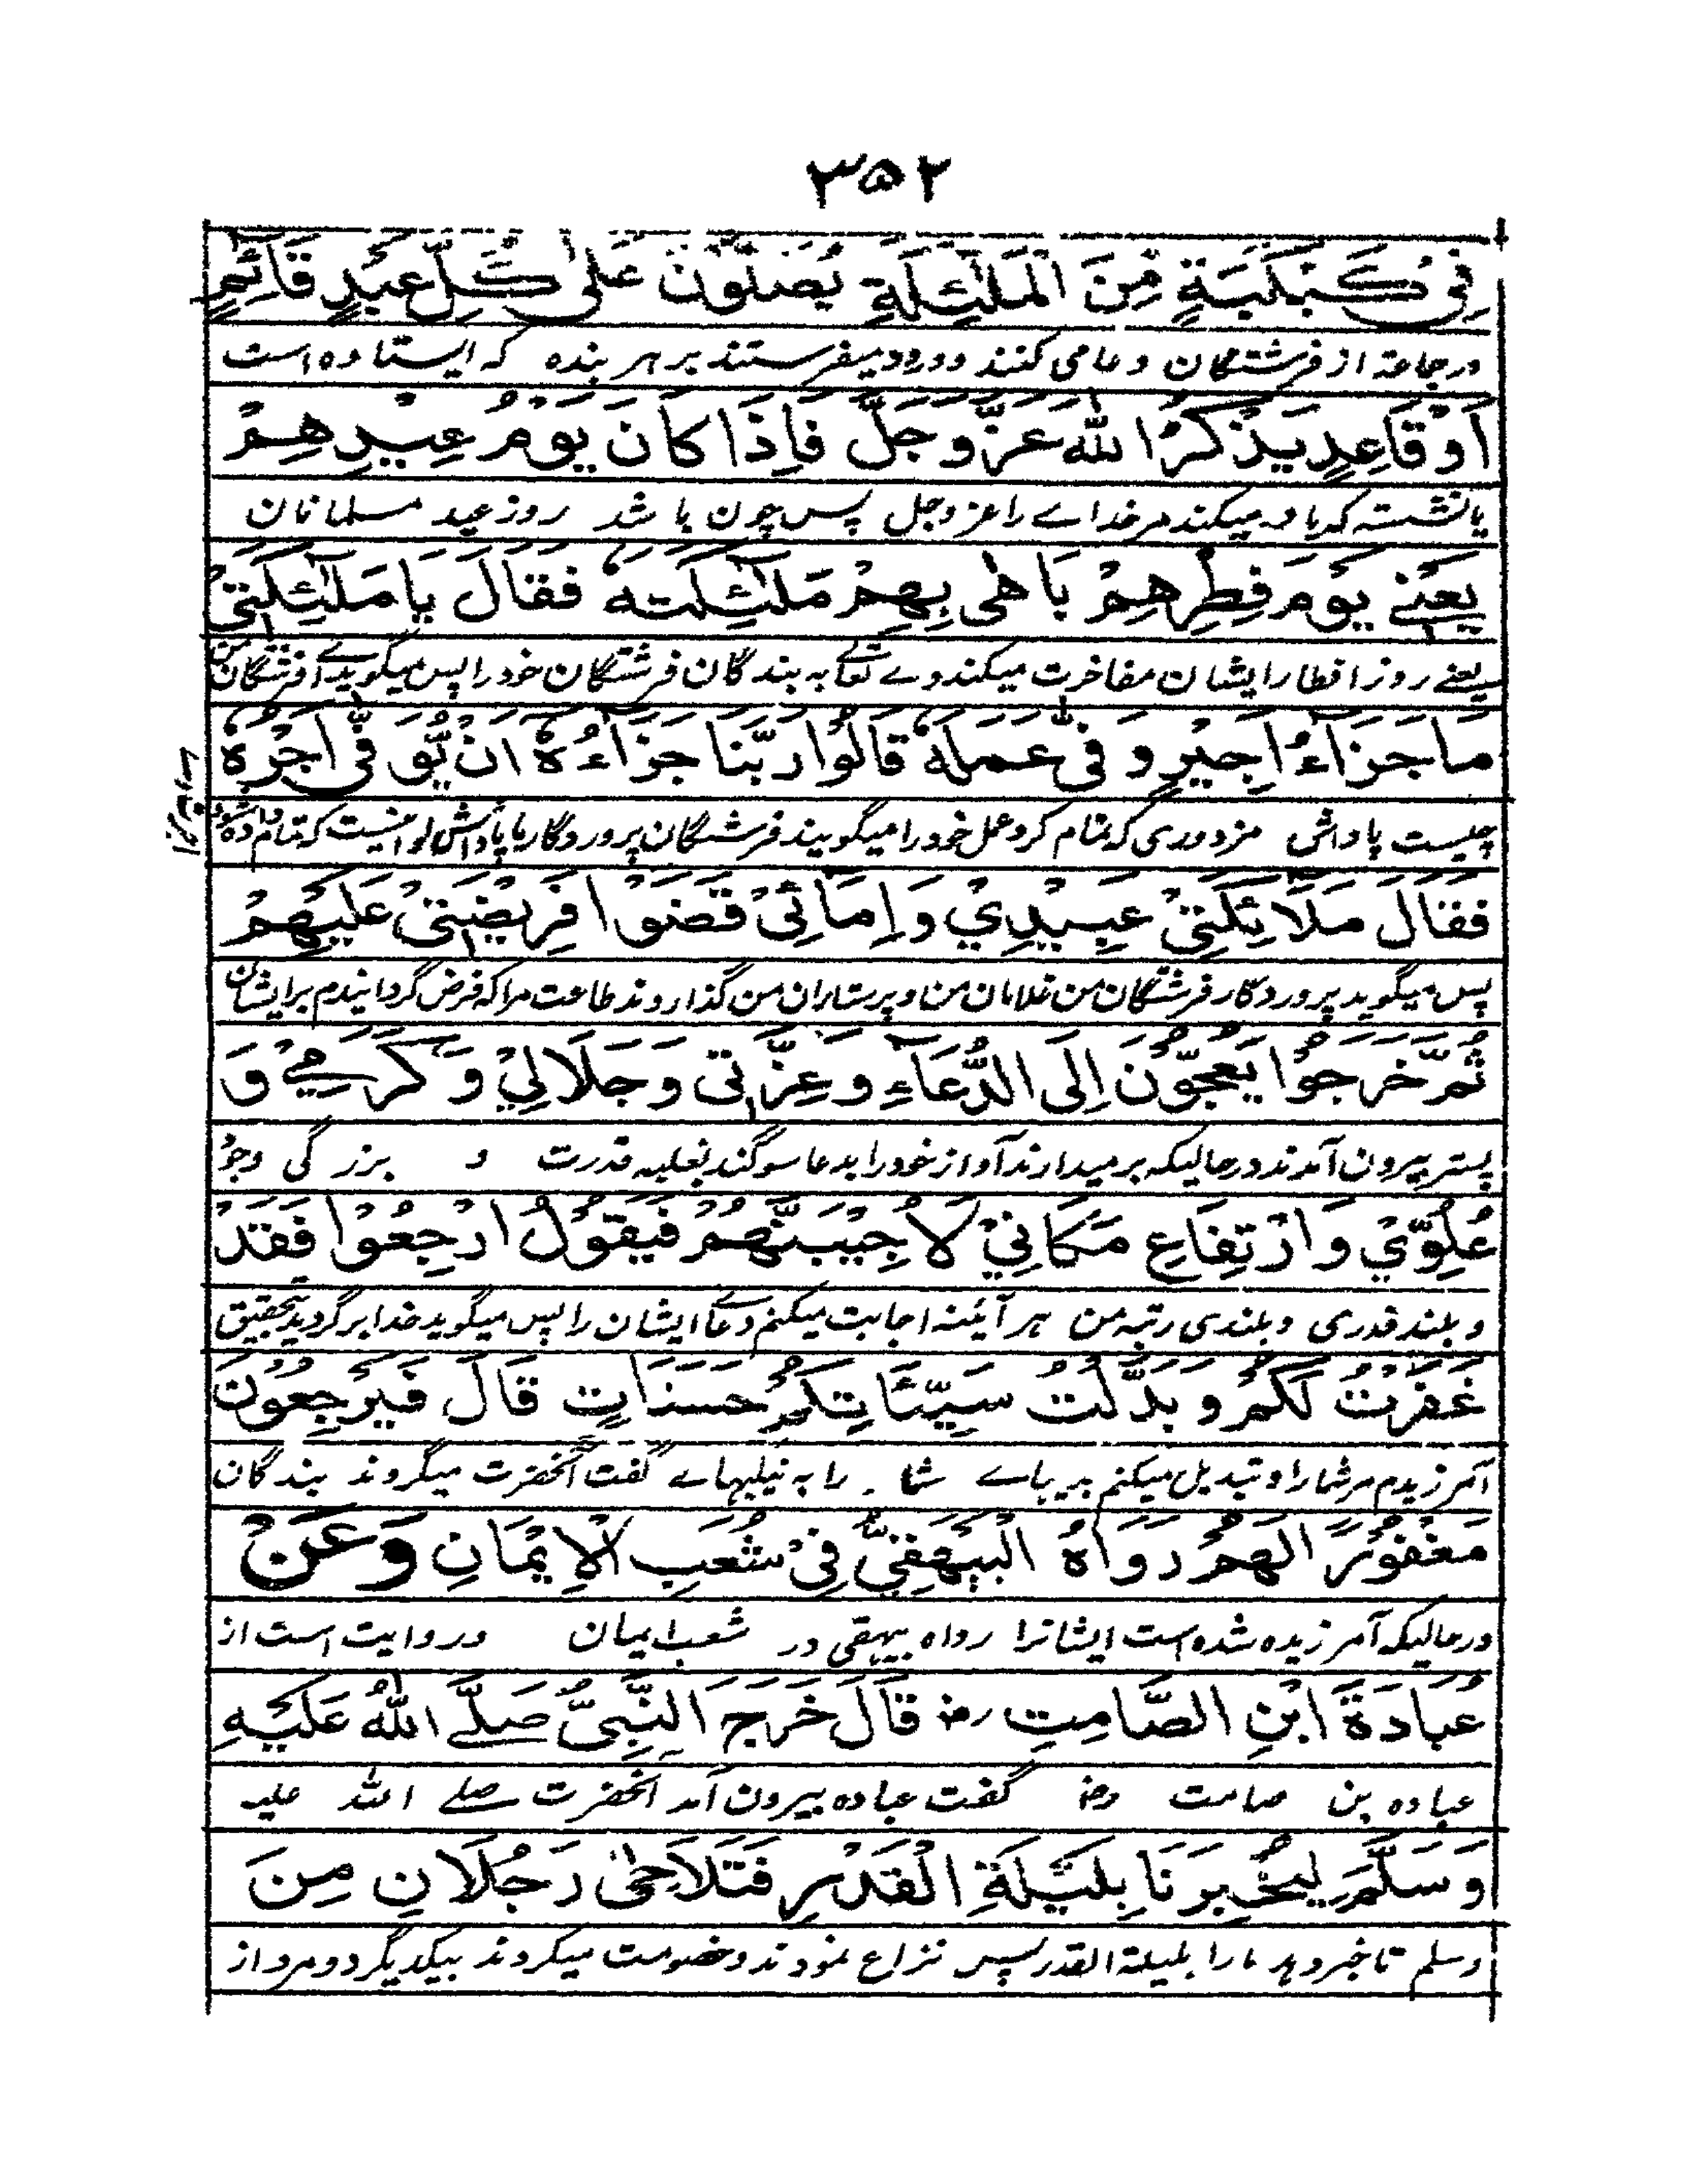 ۳۵۲
فِيْ كَبْكَبَةٍ مِنَ الْمَلٰئِكَةِ يُصَلُّوْنَ عَلٰى كُلِّ عَبْدٍ قَائِمٍ
در جماعة از فرشتگان دعا می کنند و درود میفرستند بر هر بنده که ایستاده است
اَوْ قَاعِدٍ يَذْكُرُ اللهَ عَزَّ وَجَلَّ فَاِذَا كَانَ يَوْمُ عِيْدِهِمْ
یا نشسته که یاد میکند مر خداے را عز وجل پس چون باشد روز عید مسلمانان
يَعْنِے يَوْمَ فِطْرِهِمْ بَاهٰى بِهِمْ مَلٰئِكَتَهٗ فَقَالَ يَا مَلٰئِكَتِيْ
یعنے روز افطار ایشان مفاخرت میکند وے تعالے به بندگان فرشتگان خود را پس میگوید اے فرشتگان من
مَا جَزَاءُ اَجِيْرٍ وَفّٰى عَمَلَهٗ قَالُوْا رَبَّنَا جَزَاءُهٗ اَنْ يُّوَفّٰى اَجْرُهٗ
چیست پاداش مزدوری که تمام کرد عمل خود را میگویند فرشتگان پروردگار ما پاداش او اینست که تمام داده شود
اجرت وے
فَقَالَ مَلَائِكَتِيْ عَبِيْدِيْ وَاِمَائِيْ قَضَوْا فَرِيْضَتِيْ عَلَيْهِمْ
پس میگوید پروردگار فرشتگان من غلامان من و پرستاران من گذاردند طاعت مرا که فرض گردانیدم بر ایشان
ثُمَّ خَرَجُوْا يَعُجُّوْنَ اِلَى الدُّعَاءِ وَعِزَّتِي وَجَلَالِيْ وَكَرَمِيْ وَ
پستر بیرون آمدند در حالیکه بر میدارند آواز خود را بدعا سوگند بغلبه قدرت و بزرگی وجو
عُلُوِّيْ وَارْتِفَاعِ مَكَانِيْ لَاُجِيْبَنَّهُمْ فَيَقُوْلُ ارْجِعُوْا فَقَدْ
و بلند قدری و بلندی رتبه من هر آئینه اجابت میکنم دعاے ایشان را پس میگوید خدا برگردید بتحقیق
غَفَرْتُ لَكُمْ وَبَدَّلْتُ سَيِّئَاتِكُمْ حَسَنَاتٍ قَالَ فَيَرْجِعُوْنَ
آمرزیدم مر شما را و تبدیل میکنم بدیہاے شما را به نیکیہاے گفت آنحضرت میگروند بندگان
مَغْفُوْرًا لَهُمْ رَوَاهُ الْبَيْهَقِيُّ فِيْ شُعَبِ الْاِيْمَانِ وَعَنْ
در حالیکه آمرزیده شده است ایشانرا رواه بیہقی در شعب ایمان و روایت است از
عُبَادَةَ ابْنِ الصَّامِتِ رضـ قَالَ خَرَجَ النَّبِيُّ صَلَّے اللهُ عَلَيْهِ
عباده بن صامت رضـ گفت عباده بیرون آمد آنحضرت صلے الله علیہ
وَسَلَّمَ لِيُخْبِرَنَا بِلَيْلَةِ الْقَدْرِ فَتَلَاحٰى رَجُلَانِ مِنَ
وسلم تا خبر دہد ما را بلیلة القدر پس نزاع نمودند و خصومت میکردند بیکدیگر دو مرد از